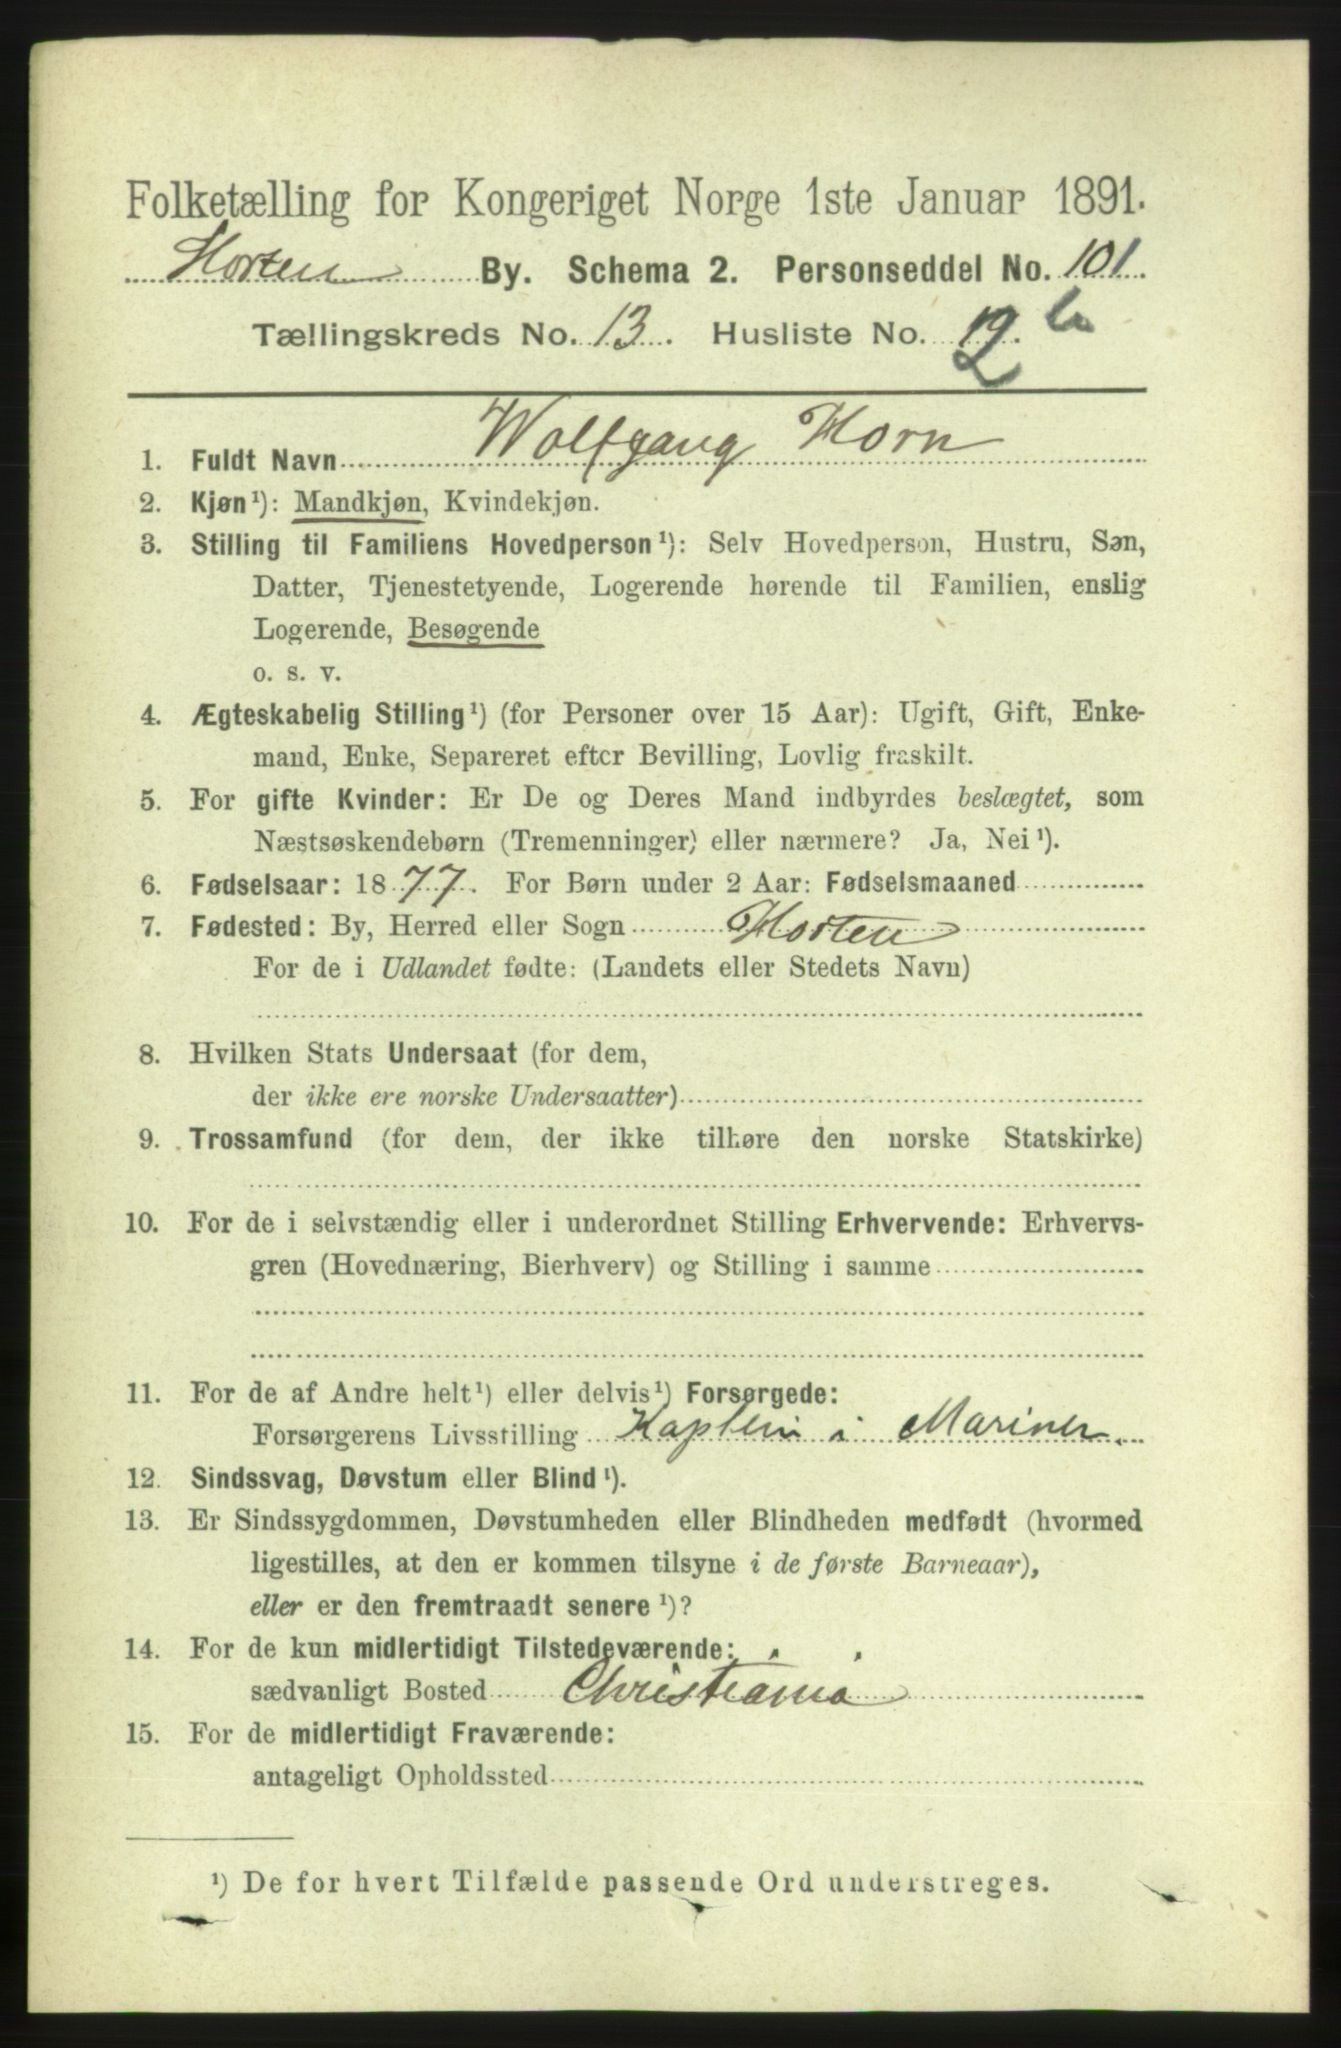 Folketælling for Kongeriget Norge 1ste Januar 1891.
Horten By. Schema 2. Personseddel No. 101
Tællingskreds No. 13. Husliste No. 12 b
1. Fuldt Navn Wolfgang Horn
2. Kjøn¹): Mandkjøn, Kvindekjøn.
3. Stilling til Familiens Hovedperson¹): Selv Hovedperson, Hustru, Søn,
Datter, Tjenestetyende, Logerende hørende til Familien, enslig
Logerende, Besøgende
o. s. v.
4. Ægteskabelig Stilling¹) (for Personer over 15 Aar): Ugift, Gift, Enke-
mand, Enke, Separeret efter Bevilling, Lovlig fraskilt.
5. For gifte Kvinder: Er De og Deres Mand indbyrdes beslægtet, som
Næstsøskendebørn (Tremenninger) eller nærmere? Ja, Nei¹).
6. Fødselsaar: 1877. For Børn under 2 Aar: Fødselsmaaned
7. Fødested: By, Herred eller Sogn Horten
For de i Udlandet fødte: (Landets eller Stedets Navn)
8. Hvilken Stats Undersaat (for dem,
der ikke ere norske Undersaatter)
9. Trossamfund (for dem, der ikke tilhøre den norske Statskirke)
10. For de i selvstændig eller i underordnet Stilling Erhvervende: Erhvervs-
gren (Hovednæring, Bierhverv) og Stilling i samme
11. For de af Andre helt¹) eller delvis¹) Forsørgede:
Forsørgerens Livsstilling Kaptein i Marinen.
12. Sindssvag, Døvstum eller Blind¹).
13. Er Sindssygdommen, Døvstumheden eller Blindheden medfødt (hvormed
ligestilles, at den er kommen tilsyne i de første Barneaar),
eller er den fremtraadt senere¹)?
14. For de kun midlertidigt Tilstedeværende:
sædvanligt Bosted Christiania
15. For de midlertidigt Fraværende:
antageligt Opholdssted
¹) De for hvert Tilfælde passende Ord understreges.